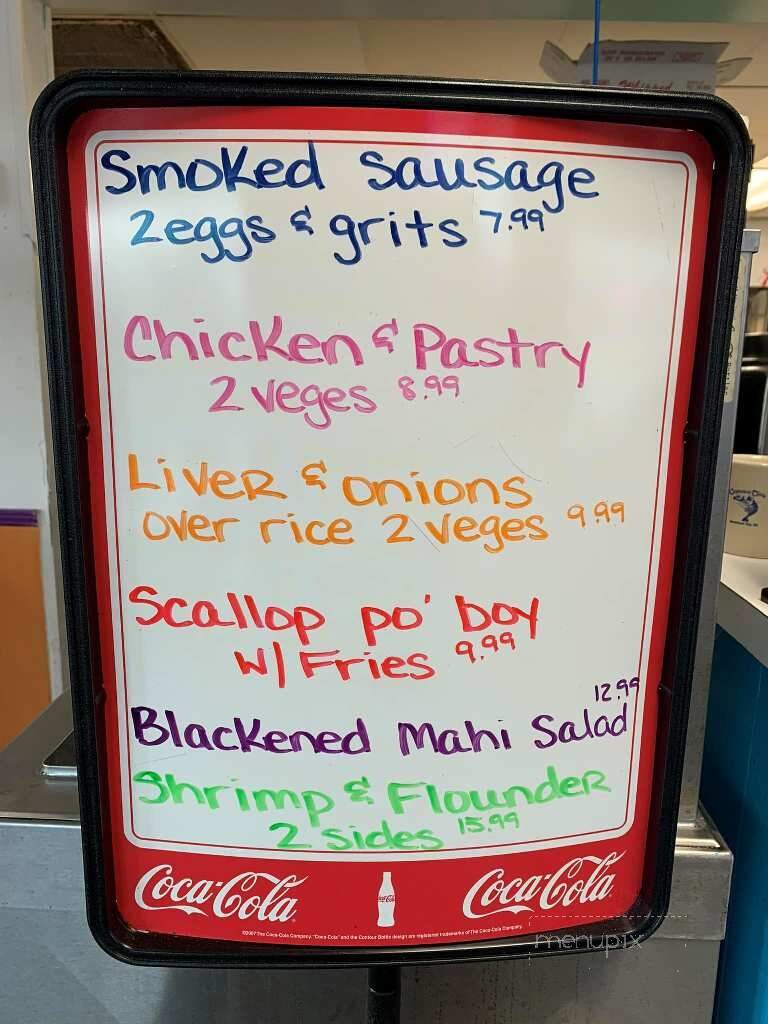 Smoked Sausage
2 eggs & grits 7.99
Chicken & Pastry
2 veges 8.99
Liver & onions
over rice 2 veges 9.99
Scallop po' boy
w/ Fries 9.99
12.99
Blackened Mahi Salad
Shrimp & Flounder
2 sides 15.99
Coca-Cola Coca-Cola
©2007 The Coca-Cola Company. "Coca-Cola" and the Contour Bottle design are registered trademarks of The Coca-Cola Company.
menupix